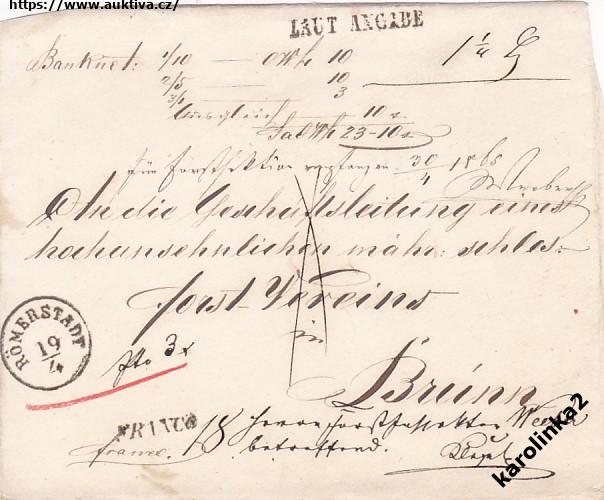 https://www.auktiva.cz/
LAUT ANGABE
Banknot: 1/10 — 10
2/5 — 10
3/1 — 3
10 x
23-10 x
1 1/4
für Forstsektion empfangen 30/4 1865
An die Geschäftsleitung eines
hochansehnlichen mähr: schles:
Forst-Vereins
in
Brünn
RÖMERSTADT
19/4
pto 3x
FRANCO
franco.
18
Herrn
betreffend.
karolinka2